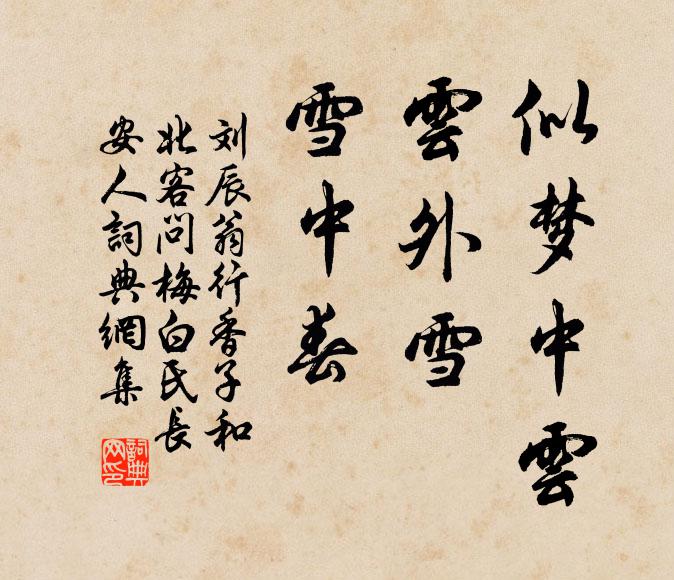 似梦中雲
雲外雪
雪中春
刘辰翁行香子和
北客问梅白氏長
安人詞典網集
詞典網印